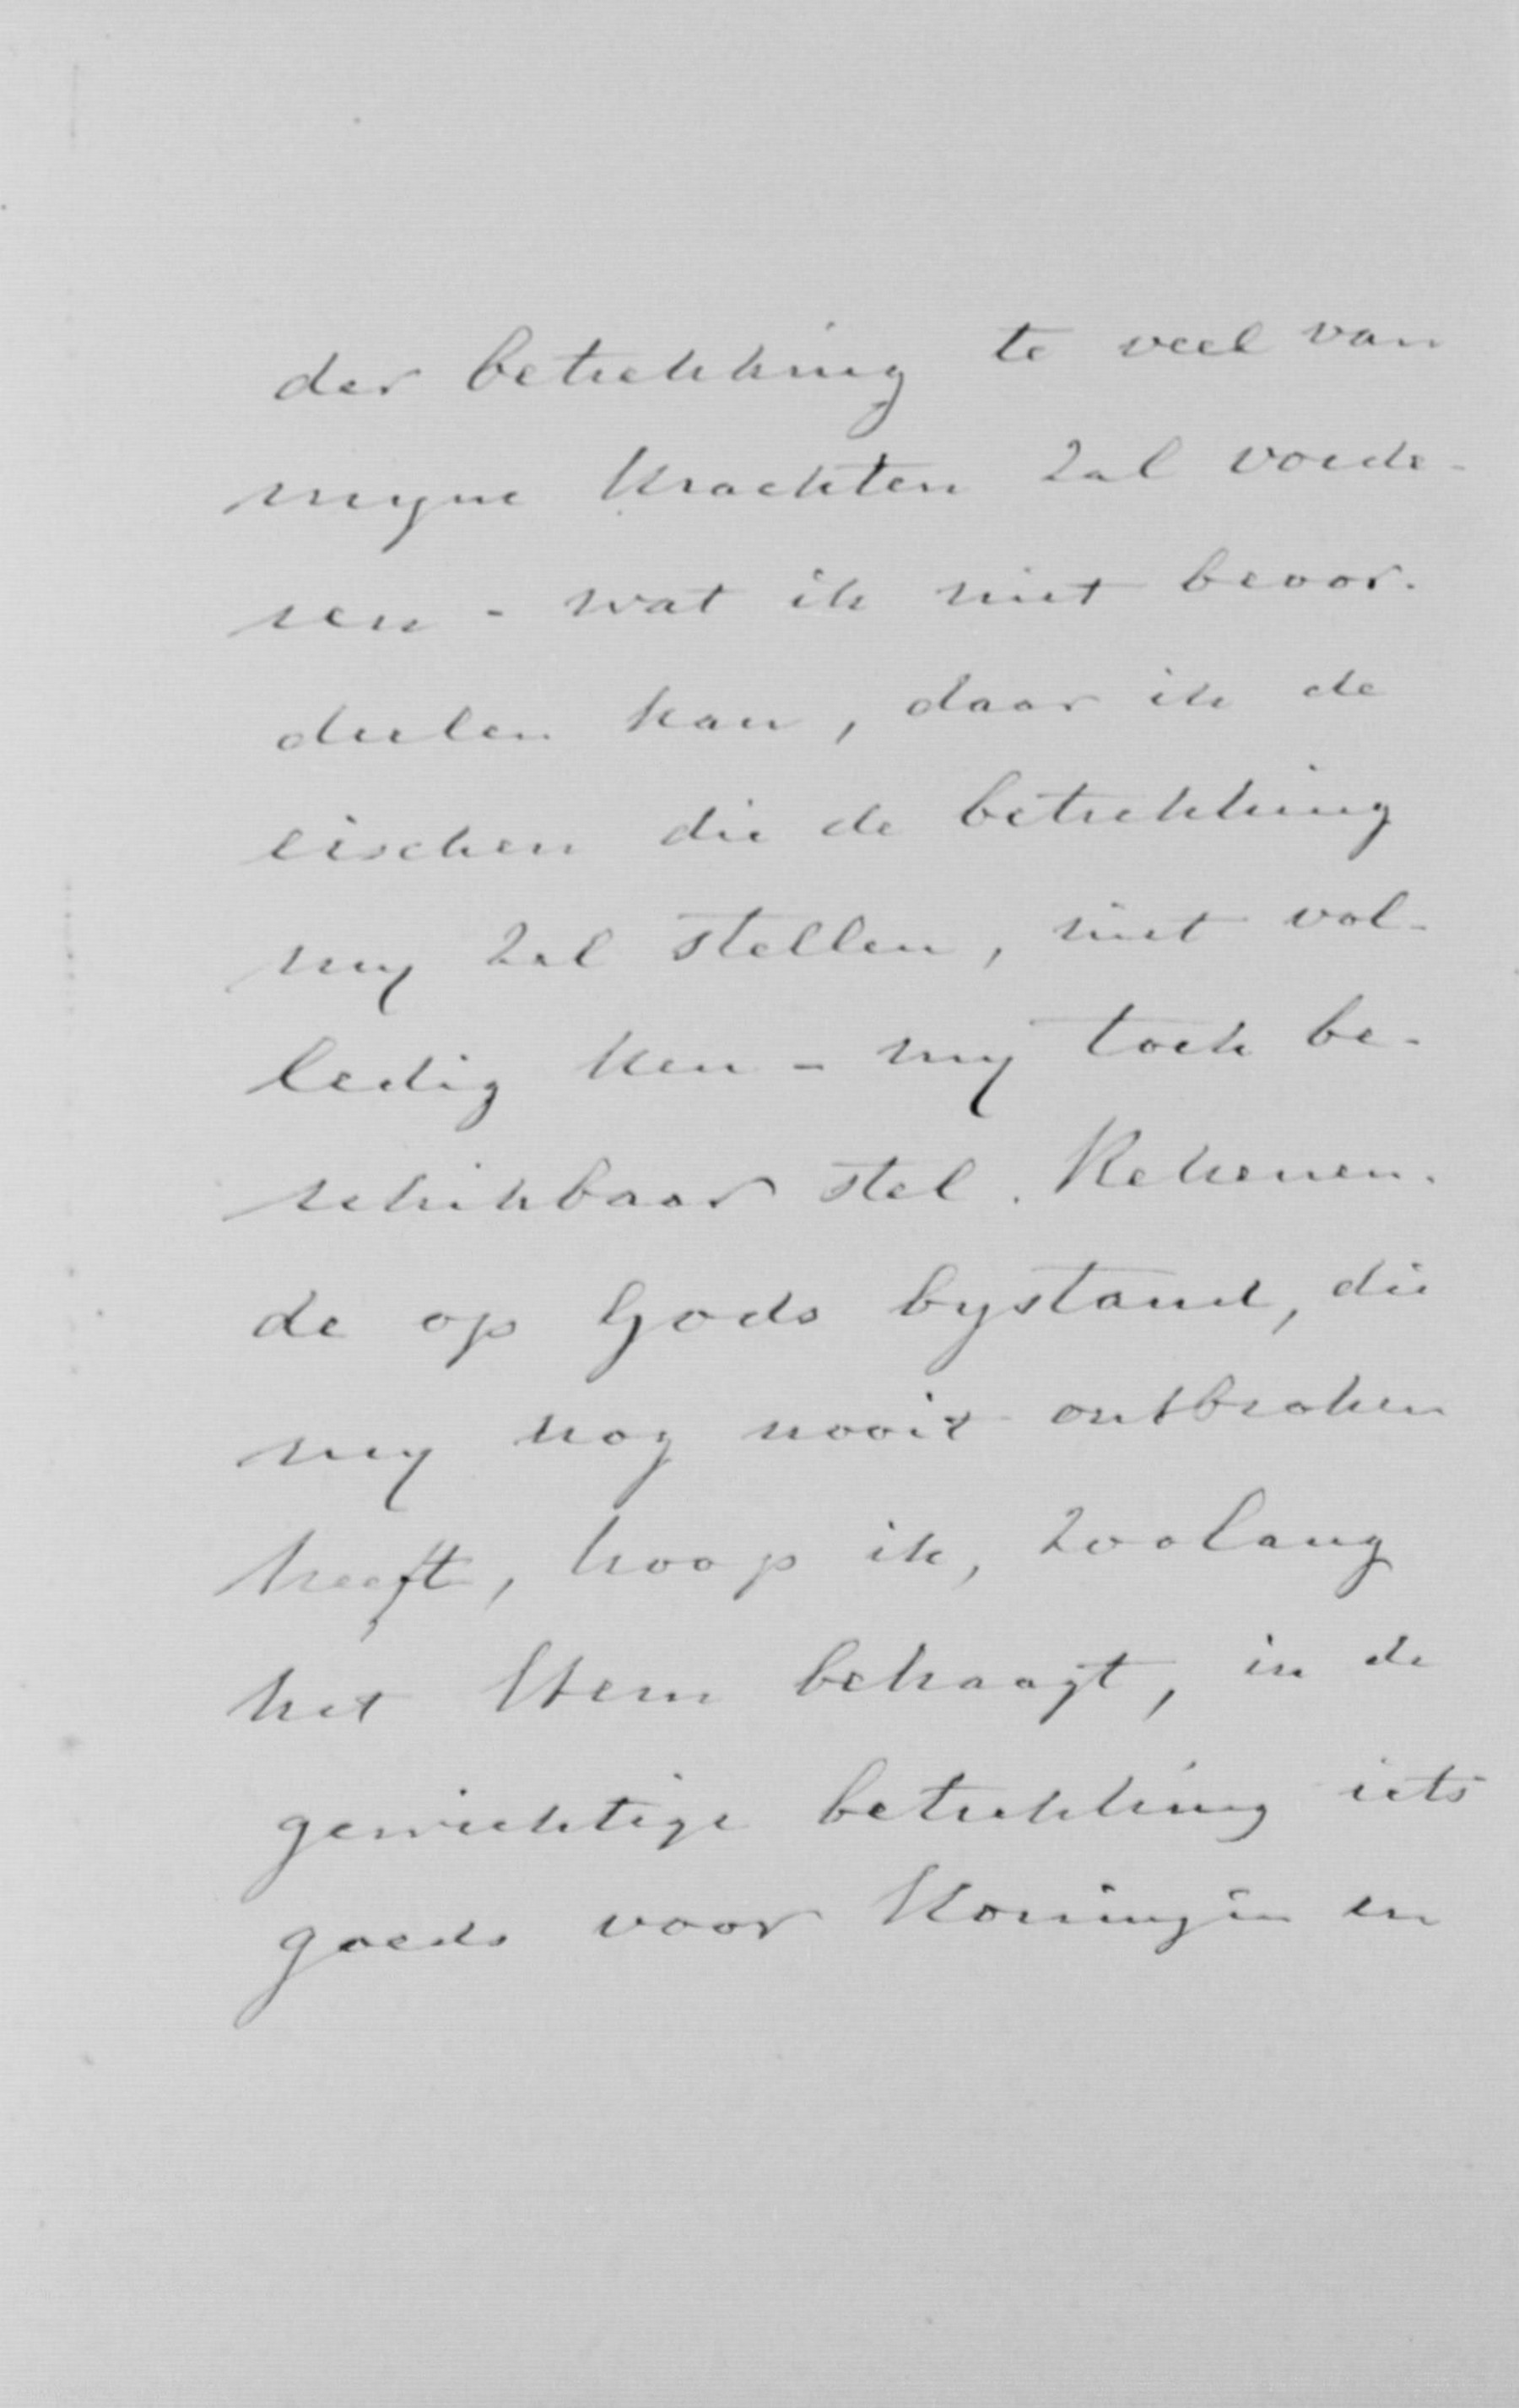 der betrekking te veel van
myne krachten zal vorde-
ren - wat ik niet beoor-
deelen kan, daar ik de
eischen die de betrekking
my zal stellen, niet vol-
ledig ken - my toch be-
schikbaar stel. Rekenen-
de op Gods bystand, die
my nog nooit ontbroken
heeft, hoop ik, zoolang
het Hem behaagt, in de
gewichtige betrekking iets
goeds voor Koningin en